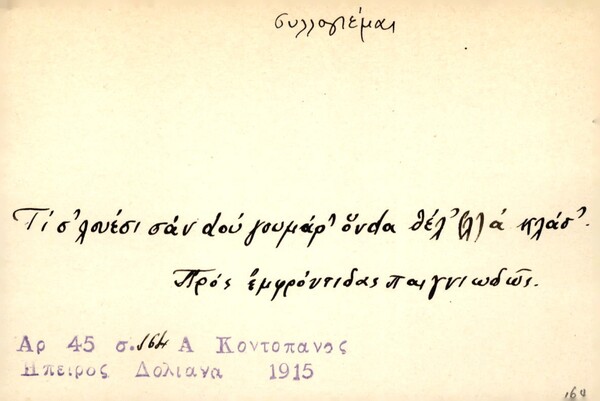 συλλογιέμαι
Τί σ'λουέσι σάν dού γουμάρ' ὅνdα θέλ' (λ)ά κλάσ'.
Πρός ἐμφρόντιδας παιγνιωδῶς.
Αρ 45 σ. 164 Α Κοντοπανος
Ηπειρος Δολιανα 1915
164